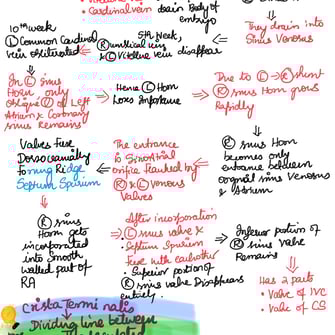 Cardinal vein drain Body of
embryo
They drain into
Sinus Venosus
10th week
Ⓛ Common Cardinal
vein obliterated
5th Week,
Ⓡ umbilical vein
& Ⓛ Vitelline vein disappear
In Ⓛ sinus
Horn only
oblique Ⓥ of Left
Atrium & Coronary
sinus Remains
Hence Ⓛ Horn
loses Importance
Due to Ⓛ→Ⓡ shunt
Ⓡ sinus Horn grows
Rapidly
Ⓡ sinus Horn
becomes only
entrance between
original sinus Venosus
& Atrium
The entrance
to Sinoatrial
orifice flanked by
Ⓡ & Ⓛ Venous
Valves
Valves Fuse
Dorsocranially
forming Ridge
Septum Spurium
Ⓡ sinus
Horn gets
incorporated
into smooth
walled part of
RA
After incorporation
Ⓛ sinus valve &
Septum Spurium
Fuse with eachother
• Superior portion of
Ⓡ sinus valve Disappears
entirely.
Inferior portion of
Ⓡ sinus valve
Remains
Has 2 parts
• Valve of IVC
• Valve of CS
Crista Terminalis
→ Dividing line between